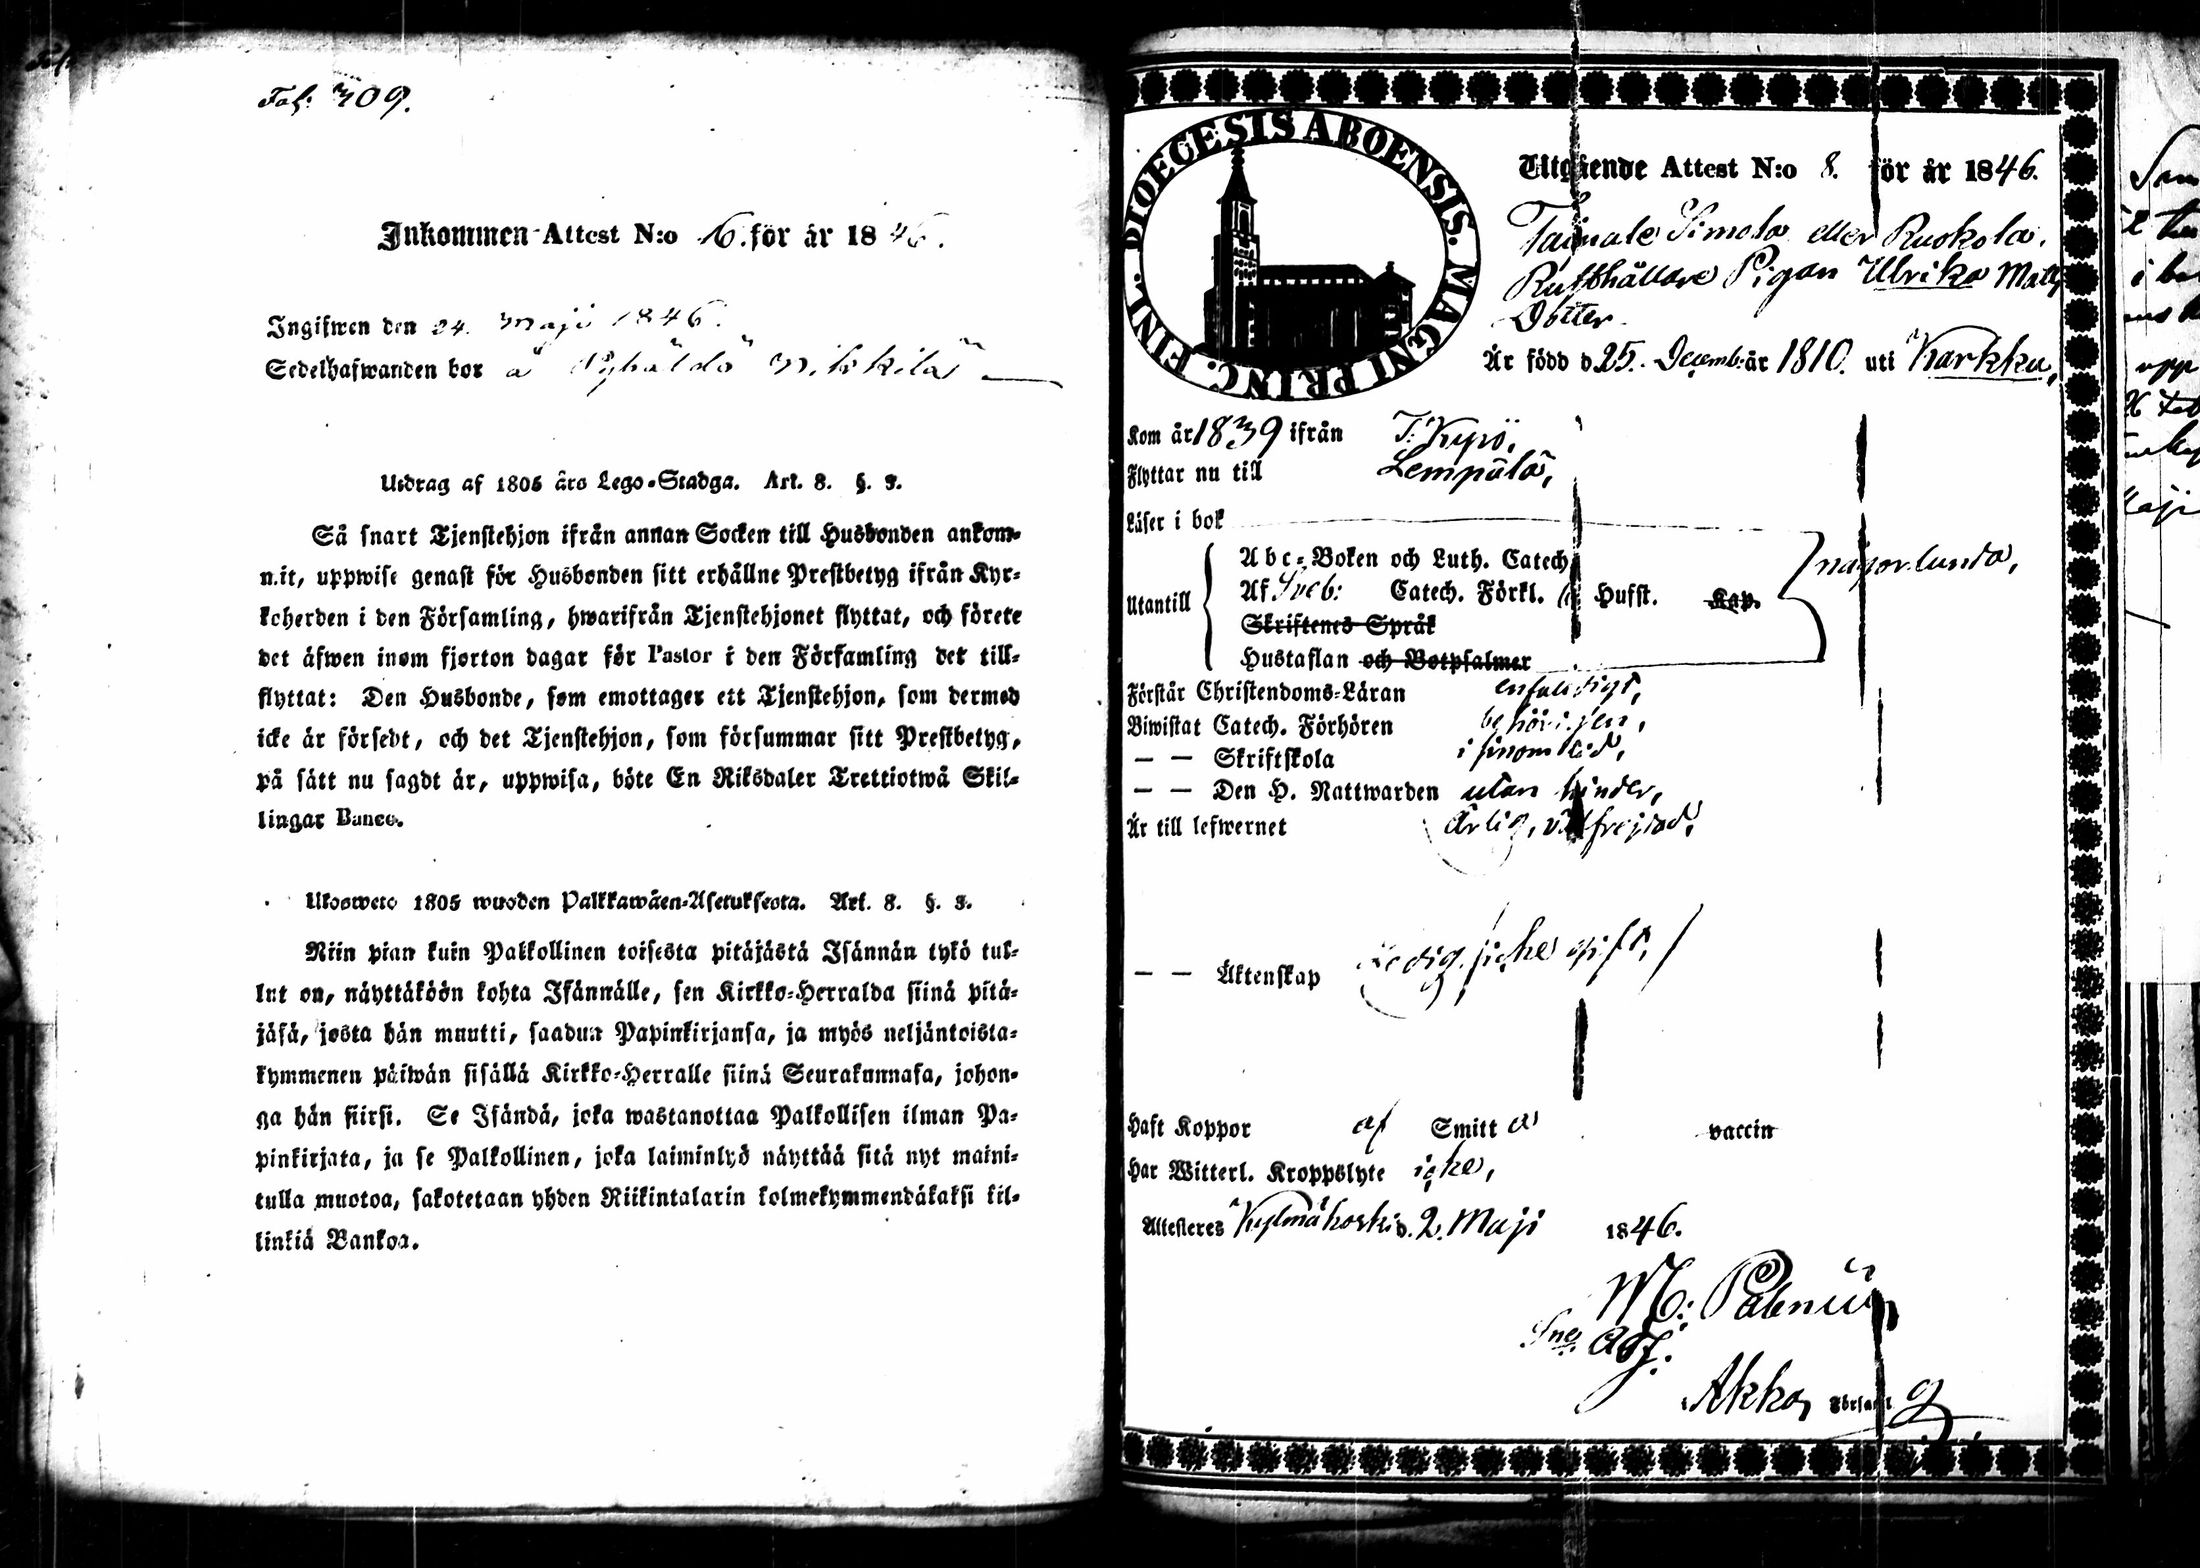 Fol: 309.
Inkommen Attest N:o 16. för år 1846.
Ingifwen den 24. Maji 1846.
Sedelhafwanden bor å Pyhäldö Nikkilä
Utdrag af 1805 års Lego-Stadga. Art. 8. §. 3.
Så snart Tjenstehjon ifrån annan Socken till Husbonden ankom-
mit, uppwise genast för Husbonden sitt erhållne Prestbetyg ifrån Kyr-
koherden i den Församling, hwarifrån Tjenstehjonet flyttat, och förete
det äfwen inom fjorton dagar för Pastor i den Församling det till-
flyttat: Den Husbonde, som emottager ett Tjenstehjon, som dermed
icke är försedt, och det Tjenstehjon, som försummar sitt Prestbetyg,
på sätt nu sagdt är, uppwisa, böte En Riksdaler Trettiotwå Skil-
lingar Banco.
Ulosweto 1805 wuoden Palkkawäen-Asetuksesta. Art. 8. §. 3.
Niin pian kuin Palkollinen toisesta pitäjästä Isännän tykö tul-
lut on, näyttäköön kohta Isännälle, sen Kirkko-Herralda siinä pitä-
jäsä, josta hän muutti, saadun Papinkirjansa, ja myös neljäntoista-
kymmenen päiwän sisällä Kirkko-Herralle siinä Seurakunnasa, johon-
ga hän siirsi. Se Isändä, joka wastanottaa Palkollisen ilman Pa-
pinkirjata, ja se Palkollinen, joka laiminlyö näyttää sitä nyt maini-
tulla muotoa, sakotetaan yhden Riikintalarin kolmekymmendäkaksi kil-
linkiä Bankoa.
DIOECESIS ABOENSIS. MAGNI PRINC. FINL.
Utgående Attest N:o 8. för år 1846.
Taipale Simola eller Ruokola.
Rusthållare Pigan Ulrika Matts
Dotter
Är född d. 25. Decemb: år 1810. uti Karkku,
Kom år 1839 ifrån T: Kyrö,
Flyttar nu till Lempälä,
Läser i bok
Abc-Boken och Luth. Catech.
Utantill Af Sveb: Catech. Förkl. Husst. Kap. någorlunda,
Skriftenes Språk
Hustaflan och Botpsalmer
Förstår Christendoms-Läran enfaldigt,
Biwistat Catech. Förhören behörigen,
— — Skriftskola i sinom tid,
— — Den H. Nattwarden utan hinder,
Är till lefwernet Ärlig, välfrejdad,
— — Äktenskap Ledig, icke gift,
Haft Koppor af Smitta vaccin
Har Witterl. Kroppslyte icke,
Attesteres Kylmäkoski d. 2. Maji 1846.
M:
Adj:
i Akka, Församl